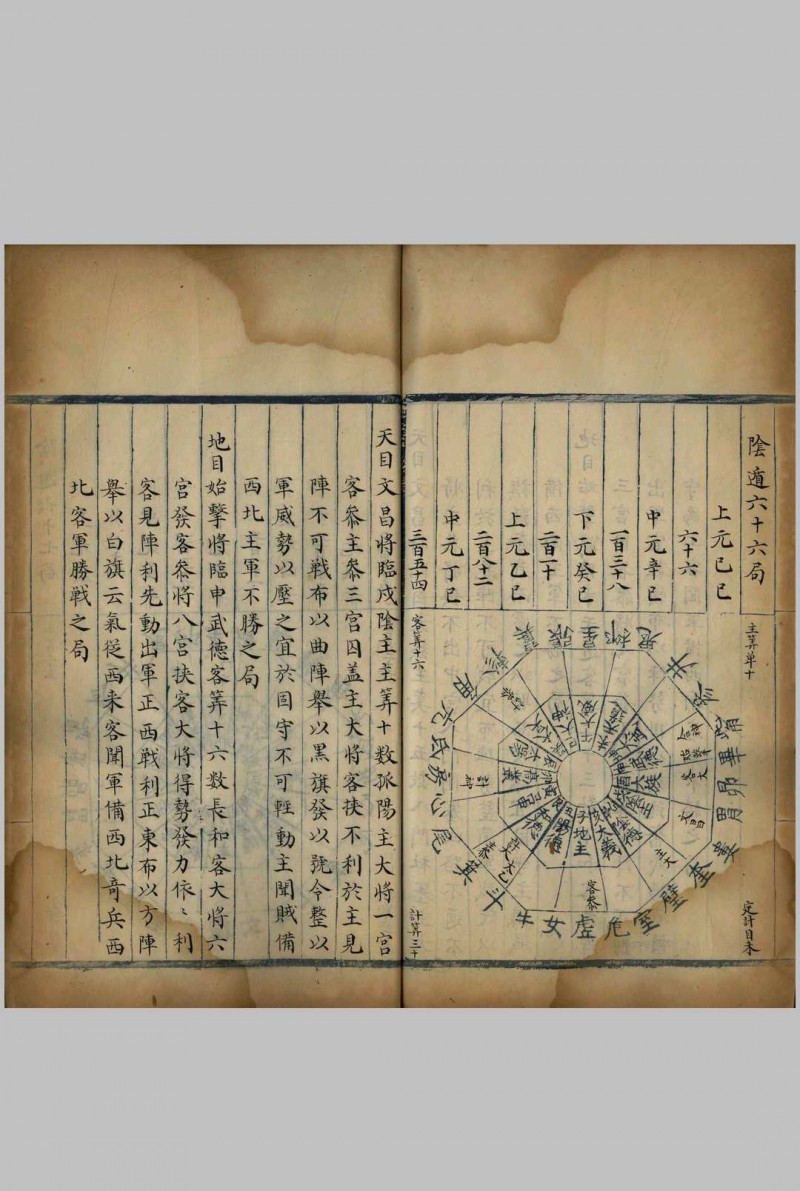 陰遁六十六局
上元己巳
六十六
中元辛巳
一百三十八
下元癸巳
二百一十
上元乙巳
二百八十二
中元丁巳
三百五十四
主筭單十
客筭十六
定計目未
計筭三十
井
鬼柳星張翼
亢氐房心尾
箕
斗
牛女虛危室壁奎婁
胃昴畢觜
客參
主大
文昌
地主
大義
天目文昌將臨戍陰主主筭十數孤陽主大將一宮
客參主參三宮囚盖主大將客挟不利於主見
陣不可戦布以曲陣舉以黒旗發以號令整以
軍威勢以壓之宜於固守不可輕動主聞賊備
西北主軍不勝之局
地目始擊將臨申武德客筭十六數長和客大將六
宮發客參將八宮挟客大將得勢發力依〻利
客見陣利先動出軍正西戦利正東布以方陣
舉以白旗云氣從西来客聞軍備西北竒兵西
北客軍勝戦之局